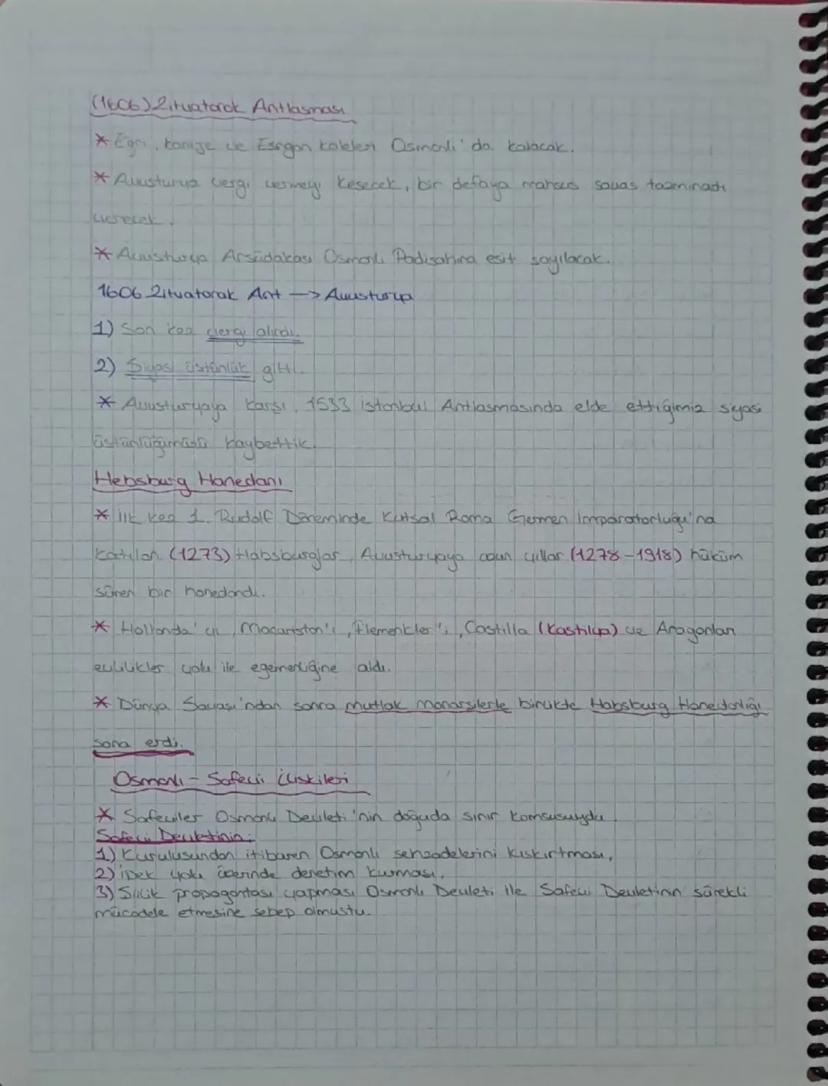 (1606) Zituatorok Antlasması
* Eğri, Kanije ve Estergon kaleleri Osmanlı'da kalacak.
* Avusturya vergi vermeyi kesecek, bir defaya mahsus savaş tazminadı
verecek.
* Avusturya Arşüdakası Osmanlı Padişahına eşit sayılacak.
1606 Zituatorok Ant → Avusturya
1) Son kez vergi alındı.
2) Siyasi üstünlük gitti.
* Avusturyaya karşı, 1533 istanbul Antlasmasında elde ettiğimiz siyasi
üstünlüğümüzü kaybettik.
Hebsburg Hanedanı
* ilk kez 1. Rudolf Döneminde Kutsal Roma Germen imparatorluğu'na
katılan (1273) Habsburglar, Avusturyaya uzun yıllar (1278-1918) hüküm
süren bir hanedandı.
* Hollanda'yı, Macaristan'ı, Flemenkler'i, Castilla (Kastilya) ve Aragonları
evlilikler yolu ile egemenliğine aldı.
* Dünya Savası'ndan sonra mutlak monarşilerle birlikte Habsburg Hanedanlığı
sona erdi.
Osmanlı - Safevii ilişkileri
* Safeviler Osmanlı Devleti'nin doğuda sınır komsusuydu.
Safevi Devletinin:
1) Kuruluşundan itibaren Osmanlı sehzadelerini kıskırtması,
2) ipek yolu üzerinde denetim kurması,
3) Siilik propagantası yapması Osmanlı Devleti ile Safevi Devletinin sürekli
mücadele etmesine sebep olmustu.